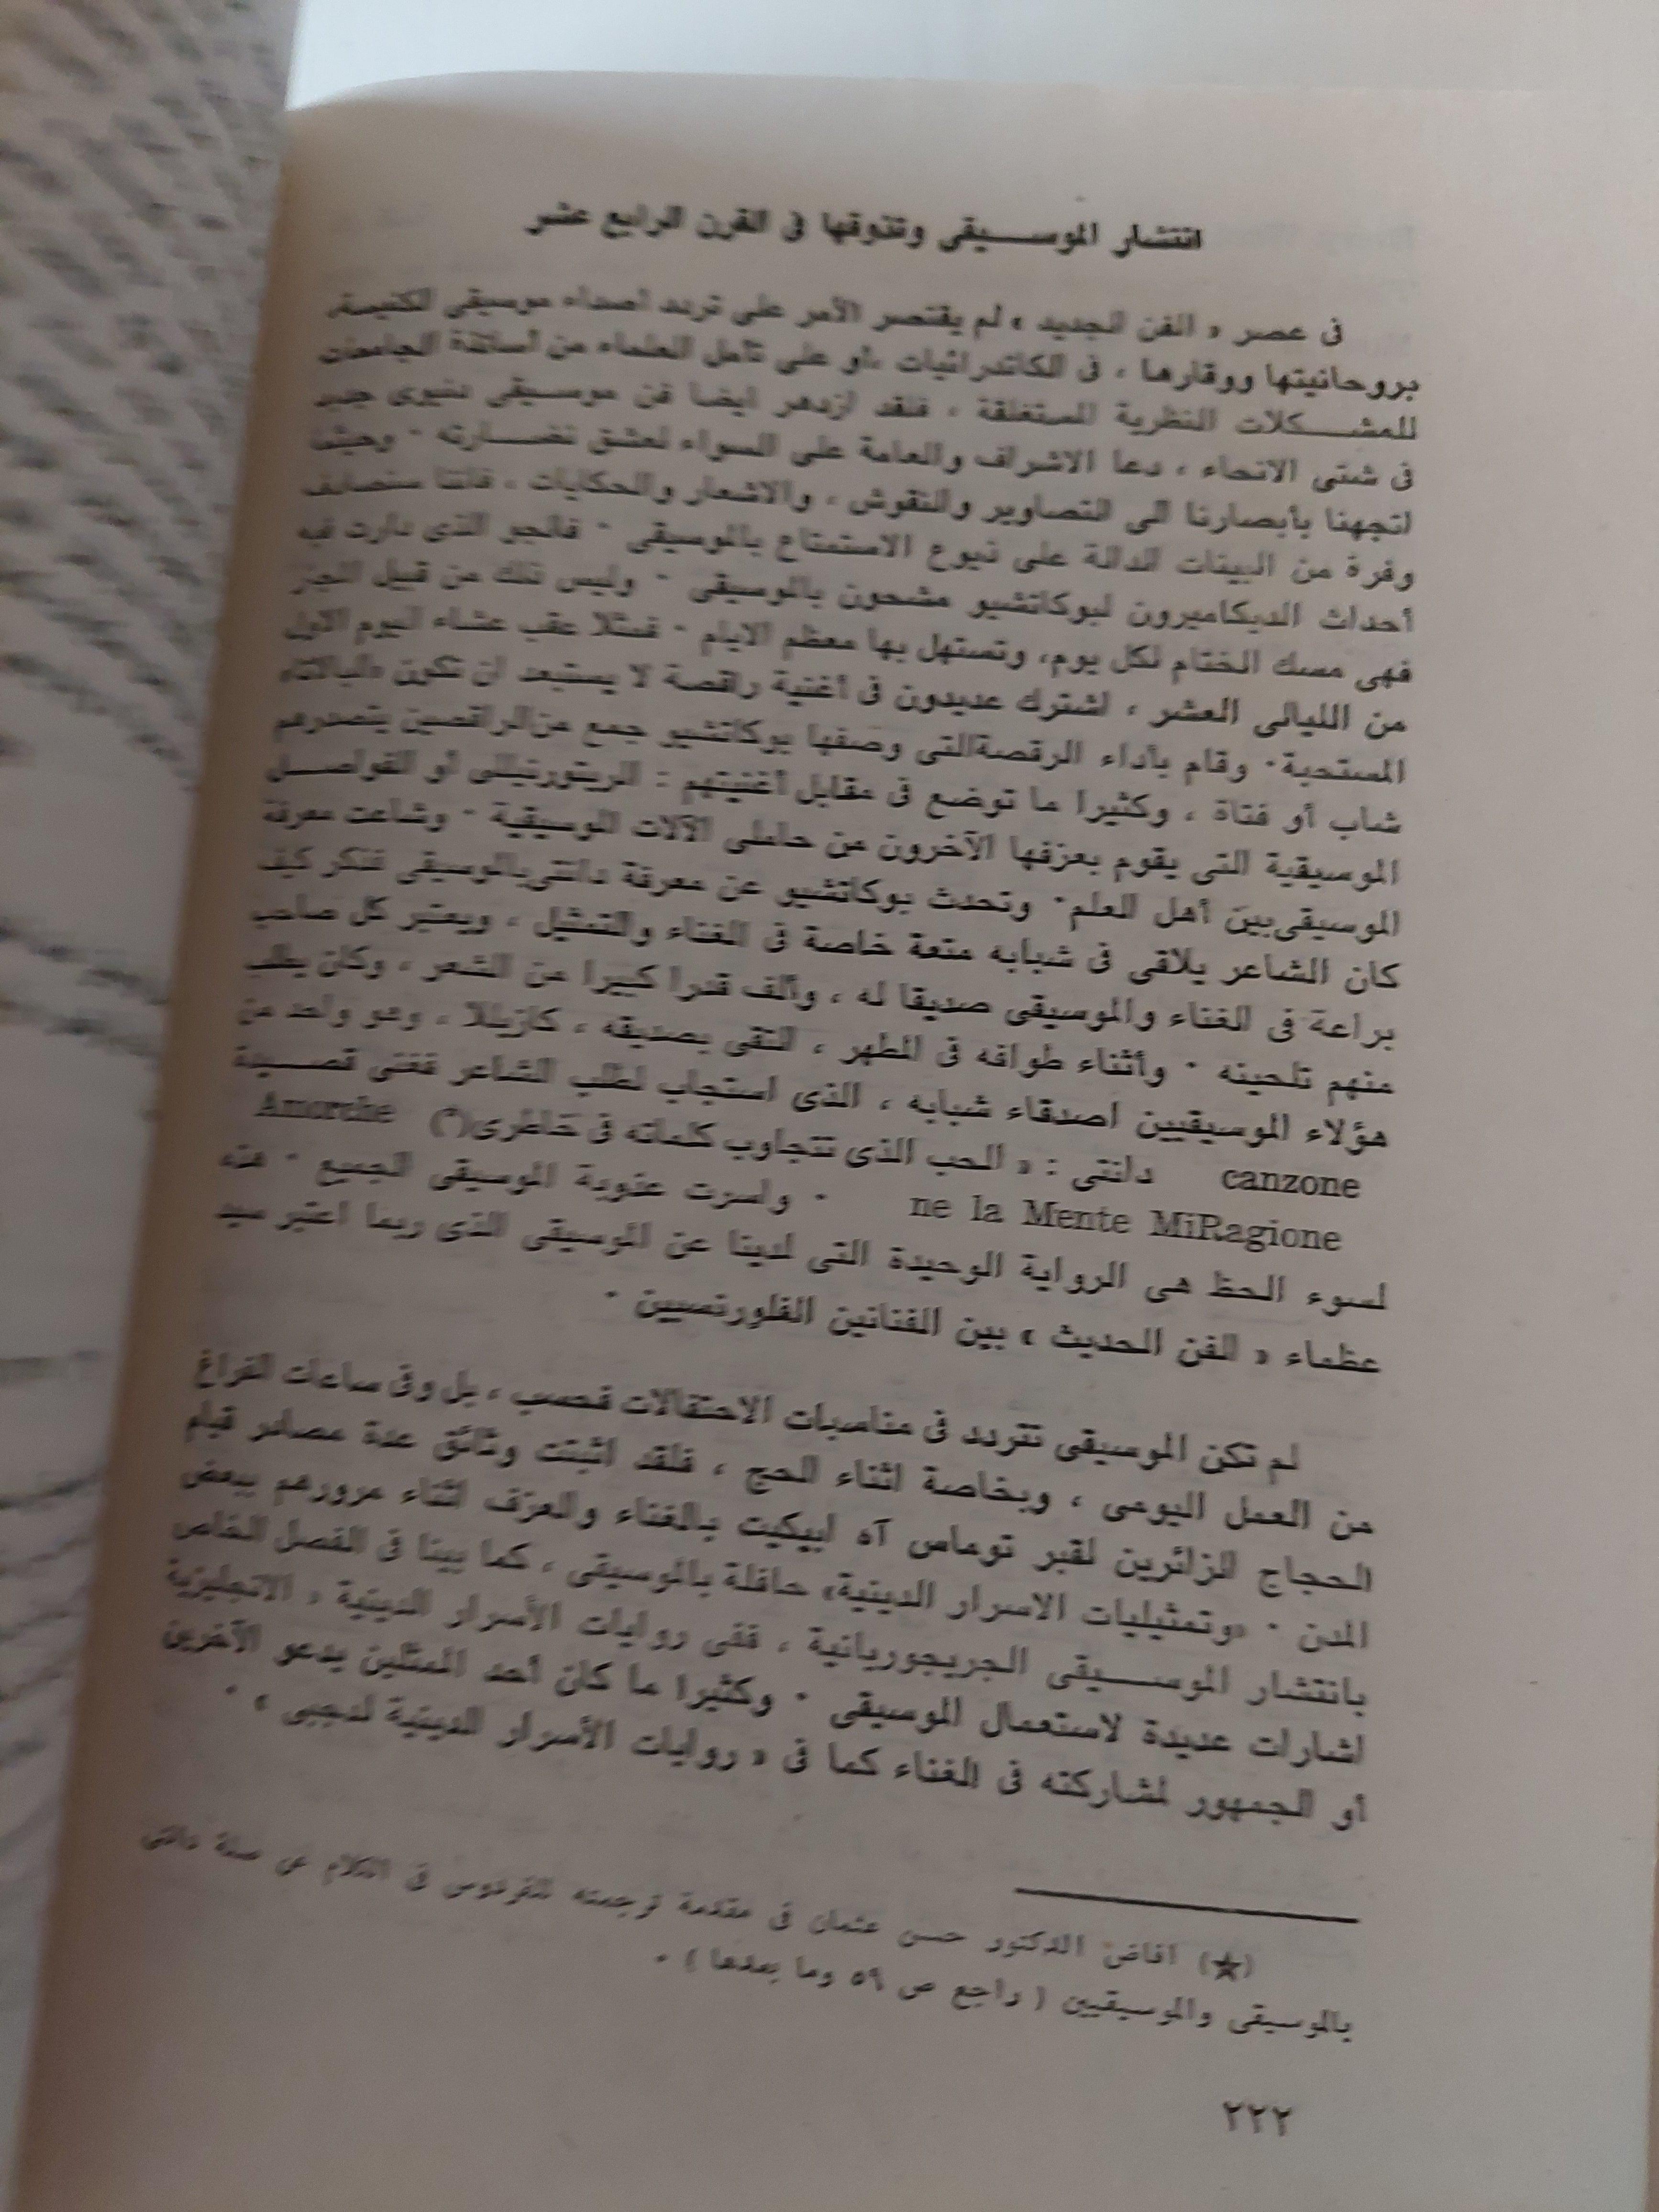 انتشار الموسيقى وتذوقها فى القرن الرابع عشر
فى عصر « الفن الجديد » لم يقتصر الأمر على تردد أصداء موسيقى الكنيسة،
بروحانيتها ووقارها ، فى الكاتدرائيات ،أو على تأمل العلماء من أساتذة الجامعات
للمشكلات النظرية المستغلقة ، فلقد ازدهر ايضا فن موسيقى دنيوى جديد
فى شتى الانحاء ، دعا الاشراف والعامة على السواء لعشق نضارته . وحيثما
اتجهنا بأبصارنا الى التصاوير والنقوش ، والاشعار والحكايات ، فاننا سنصادف
وفرة من البينات الدالة على ذيوع الاستمتاع بالموسيقى . فالجو الذى دارت فيه
أحداث الديكاميرون لبوكاتشيو مشحون بالموسيقى . وليس ذلك من قبيل المجاز
فهى مسك الختام لكل يوم، وتستهل بها معظم الايام . فمثلا عقب عشاء اليوم الاول
من الليالى العشر ، اشترك عديدون فى أغنية راقصة لا يستبعد ان تكون «البالاتا»
المستحبة . وقام بأداء الرقصةالتى وصفها بوكاتشيو جمع من الراقصين يتصدرهم
شاب أو فتاة ، وكثيرا ما توضع فى مقابل أغنيتهم : الريتورنيللى أو الفواصل
الموسيقية التى يقوم بعزفها الآخرون من حاملى الآلات الموسيقية . وشاعت معرفة
الموسيقى بين أهل العلم . وتحدث بوكاتشيو عن معرفة دانتى بالموسيقى فذكر كيف
كان الشاعر يلاقى فى شبابه متعة خاصة فى الغناء والتمثيل ، ويعتبر كل صاحب
براعة فى الغناء والموسيقى صديقا له ، وألف قدرا كبيرا من الشعر ، وكان يطلب
منهم تلحينه . وأثناء طوافه فى المطهر ، التقى بصديقه ، كازيللا ، وهو واحد من
هؤلاء الموسيقيين اصدقاء شبابه ، الذى استجاب لطلب الشاعر فغنى قصيدة
canzone دانتى : « الحب الذى تتجاوب كلماته فى خاطرى(*) Amorche
ne la Mente MiRagione . واسرت عذوبة الموسيقى الجميع . هذه
لسوء الحظ هى الرواية الوحيدة التى لدينا عن الموسيقى الذى ربما اعتبر سيد
عظماء « الفن الحديث » بين الفنانين الفلورنسيين .
لم تكن الموسيقى تتردد فى مناسبات الاحتفالات فحسب ، بل وفى ساعات الفراغ
من العمل اليومى ، وبخاصة اثناء الحج ، فلقد اثبتت وثائق عدة مصادر قيام
الحجاج الزائرين لقبر توماس آه ابيكيت بالغناء والعزف اثناء مرورهم ببعض
المدن . «وتمثيليات الاسرار الدينية» حافلة بالموسيقى ، كما بينا فى الفصل الخاص
بانتشار الموسيقى الجريجوريانية ، ففى روايات الأسرار الدينية ، الانجليزية
اشارات عديدة لاستعمال الموسيقى . وكثيرا ما كان أحد الممثلين يدعو الآخرين
أو الجمهور لمشاركته فى الغناء كما فى « روايات الأسرار الدينية لدجبى » .
(★) افاض الدكتور حسن عثمان فى مقدمة ترجمته للفردوس فى الكلام عن صلة دانتى
بالموسيقى والموسيقيين ( راجع ص ٥٩ وما بعدها ) .
٢٢٢